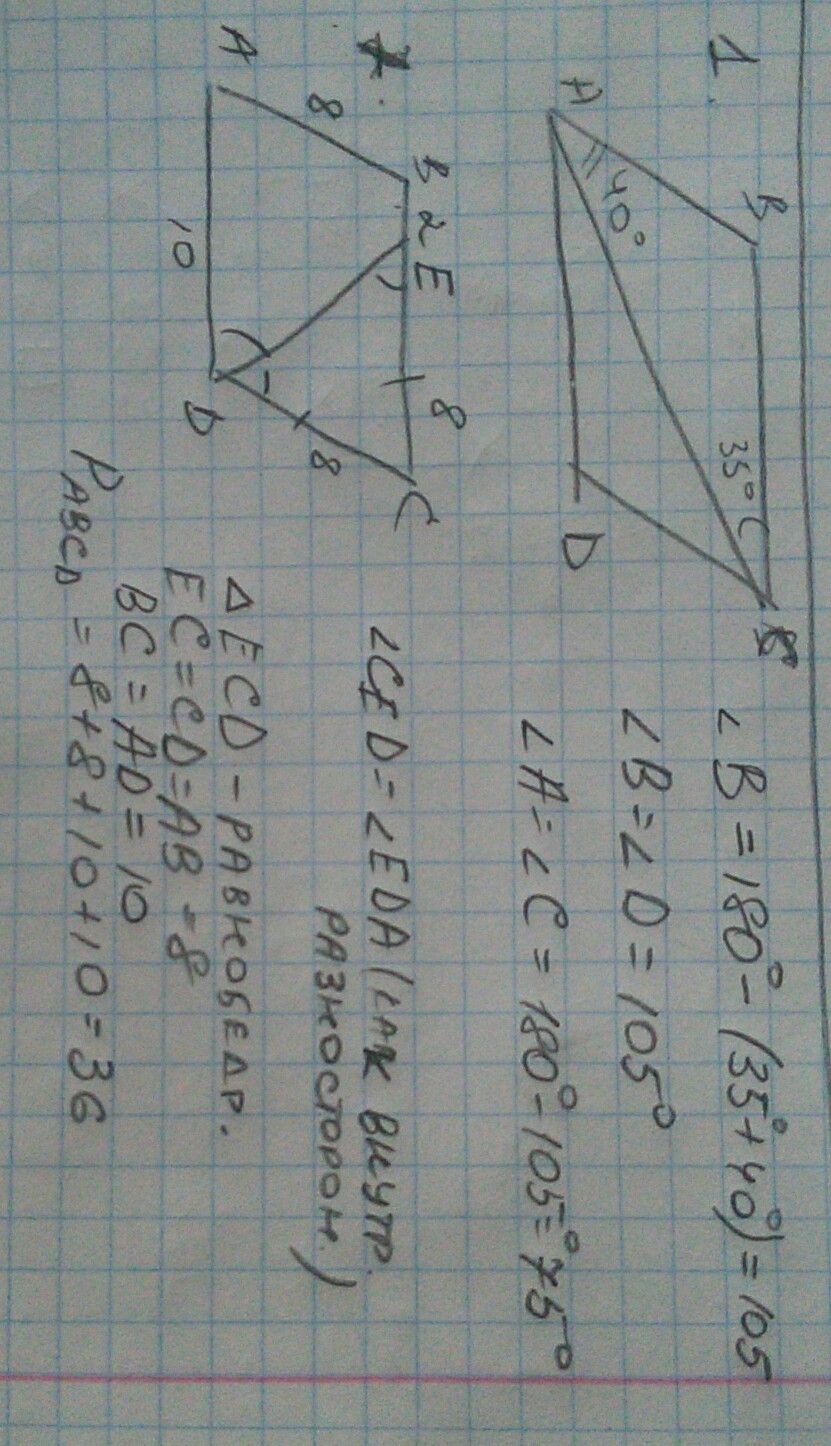 1.
A
B
C
D
40°
35°
∠B = 180° - (35° + 40°) = 105
∠B = ∠D = 105°
∠A = ∠C = 180° - 105° = 75°
B 2 E 8 C
8
8
A 10 D
∠CED = ∠EDA (как внутр.
разносторон.)
△ECD - равнобедр.
EC = CD = AB - 8
BC = AD = 10
P ABCD = 8 + 8 + 10 + 10 = 36